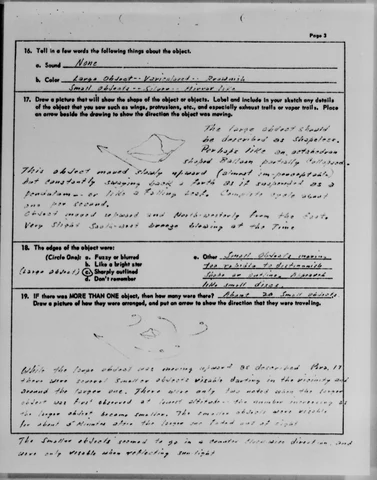 Page 3
16. Tell in a few words the following things about the object.
a. Sound None
b. Color Large Object -- Varicolored -- Brownish
Small Objects -- Silver -- Mirror like
17. Draw a picture that will show the shape of the object or objects. Label and include in your sketch any details
of the object that you saw such as wings, protrusions, etc., and especially exhaust trails or vapor trails. Place
an arrow beside the drawing to show the direction the object was moving.
The large object should
be described as shapeless.
Perhaps like an
shaped Balloon partially Collapsed.
This object moved slowly upward (almost imperceptable)
but constantly swaying back & forth as if suspended as a
pendulum -- or like a falling leaf. Complete cycle about
one per second.
Object moved upward and North-westerly from the East.
Very Slight South-west breeze blowing at the Time
18. The edges of the object were:
(Circle One): a. Fuzzy or blurred
b. Like a bright star
(Large object) c. Sharply outlined
d. Don't remember
e. Other Small Objects moving
too rapidly to distinguish
Shape or outline. Appeared
like small discs.
19. IF there was MORE THAN ONE object, then how many were there? About 20 Small Objects.
Draw a picture of how they were arranged, and put an arrow to show the direction that they were traveling.
While the large object was moving upward as described Para. 17
there were several smaller objects visable darting in the vicinity and
around the larger one. There were only two noted when the larger
object was first observed at lowest altitude -- the number increasing as
the larger object became smaller. The smaller objects were visable
for about 5 Minutes while the larger one faded out of sight
The Smaller Objects seemed to go in a Counter Clock wise direction, and
were only visable when reflecting sunlight